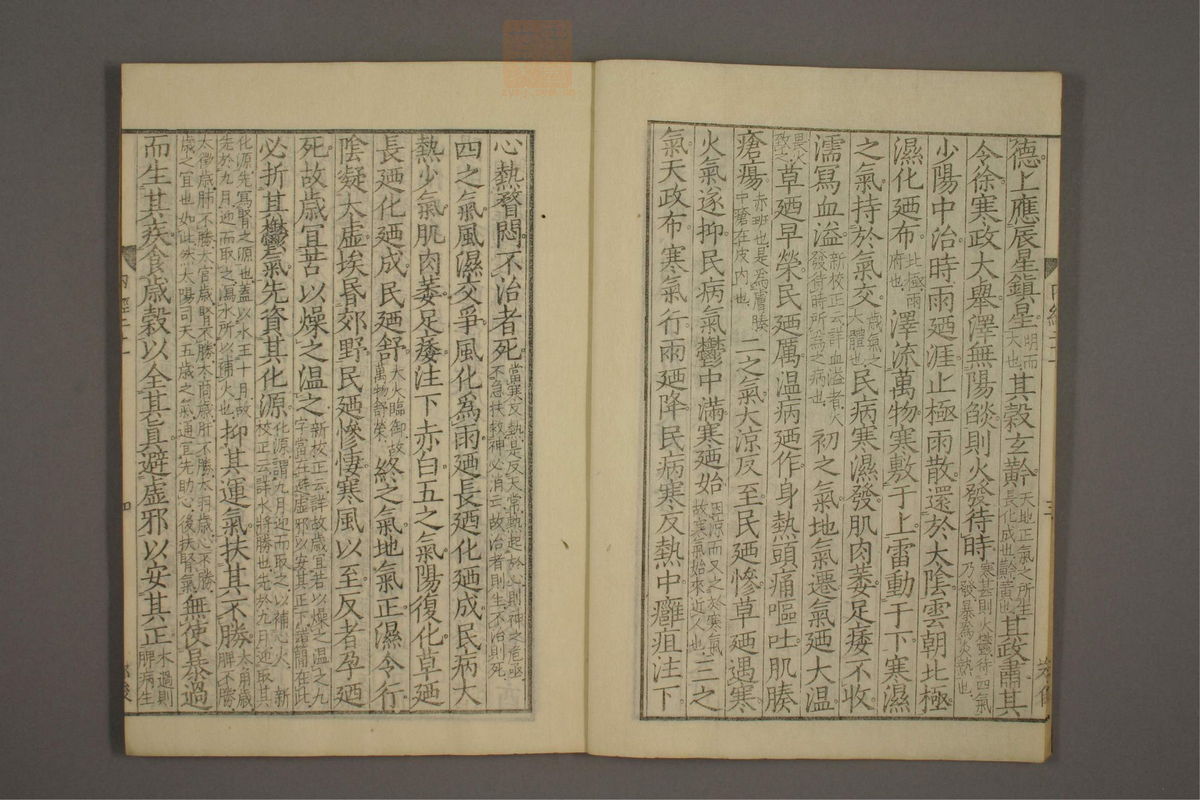 德上應辰星鎮星明而大也其穀玄黅天地正氣之所生長化成也黅黃也其政肅其
令徐寒政大舉澤無陽燄則火發待時寒甚則火鬱待四氣乃發暴爲炎熱也
少陽中治時雨廼涯止極雨散還於太陰雲朝北極
濕化廼布北極雨府也澤流萬物寒敷于上雷動于下寒濕
之氣持於氣交歲氣之大體也民病寒濕發肌肉萎足痿不收
濡寫血溢新校正云詳血溢者火發待時所爲之病也初之氣地氣遷氣廼大温
畏火致之草廼早榮民廼厲温病廼作身熱頭痛嘔吐肌腠
瘡瘍赤班也是爲膚腠中瘡在皮内也二之氣大涼反至民廼慘草廼遇寒
火氣遂抑民病氣鬱中滿寒廼始因涼而又之於寒氣故寒氣始來近人也三之
氣天政布寒氣行雨廼降民病寒反熱中癰疽注下
心熱瞀悶不治者死當寒反熱是反天常熱起於心則神之危亟不急扶救神必消亡故治者則生不治則死
四之氣風濕交爭風化爲雨廼長廼化廼成民病大
熱少氣肌肉萎足痿注下赤白五之氣陽復化草廼
長廼化廼成民廼舒大火臨御故萬物舒榮終之氣地氣正濕令行
陰凝太虛埃昏郊野民廼慘悽寒風以至反者孕廼
死故歲宜苦以燥之温之新校正云詳故歲宜苦以燥之温之九字當在避虛邪以安其正下錯簡在此
必折其鬱氣先資其化源化源謂九月迎而取之以補心火新校正云詳水將勝也先於九月迎取其
化源先寫腎之源也蓋以水王十月故先於九月迎而取之瀉水所以補火也抑其運氣扶其不勝太角歲脾不勝
太徵歲肺不勝太宮歲腎不勝太商歲肝不勝太羽歲心不勝歲之宜也如此然太陽司天五歲之氣通宜先助心後扶腎氣無使暴過
而生其疾食歲穀以全其真避虛邪以安其正木過則脾病生